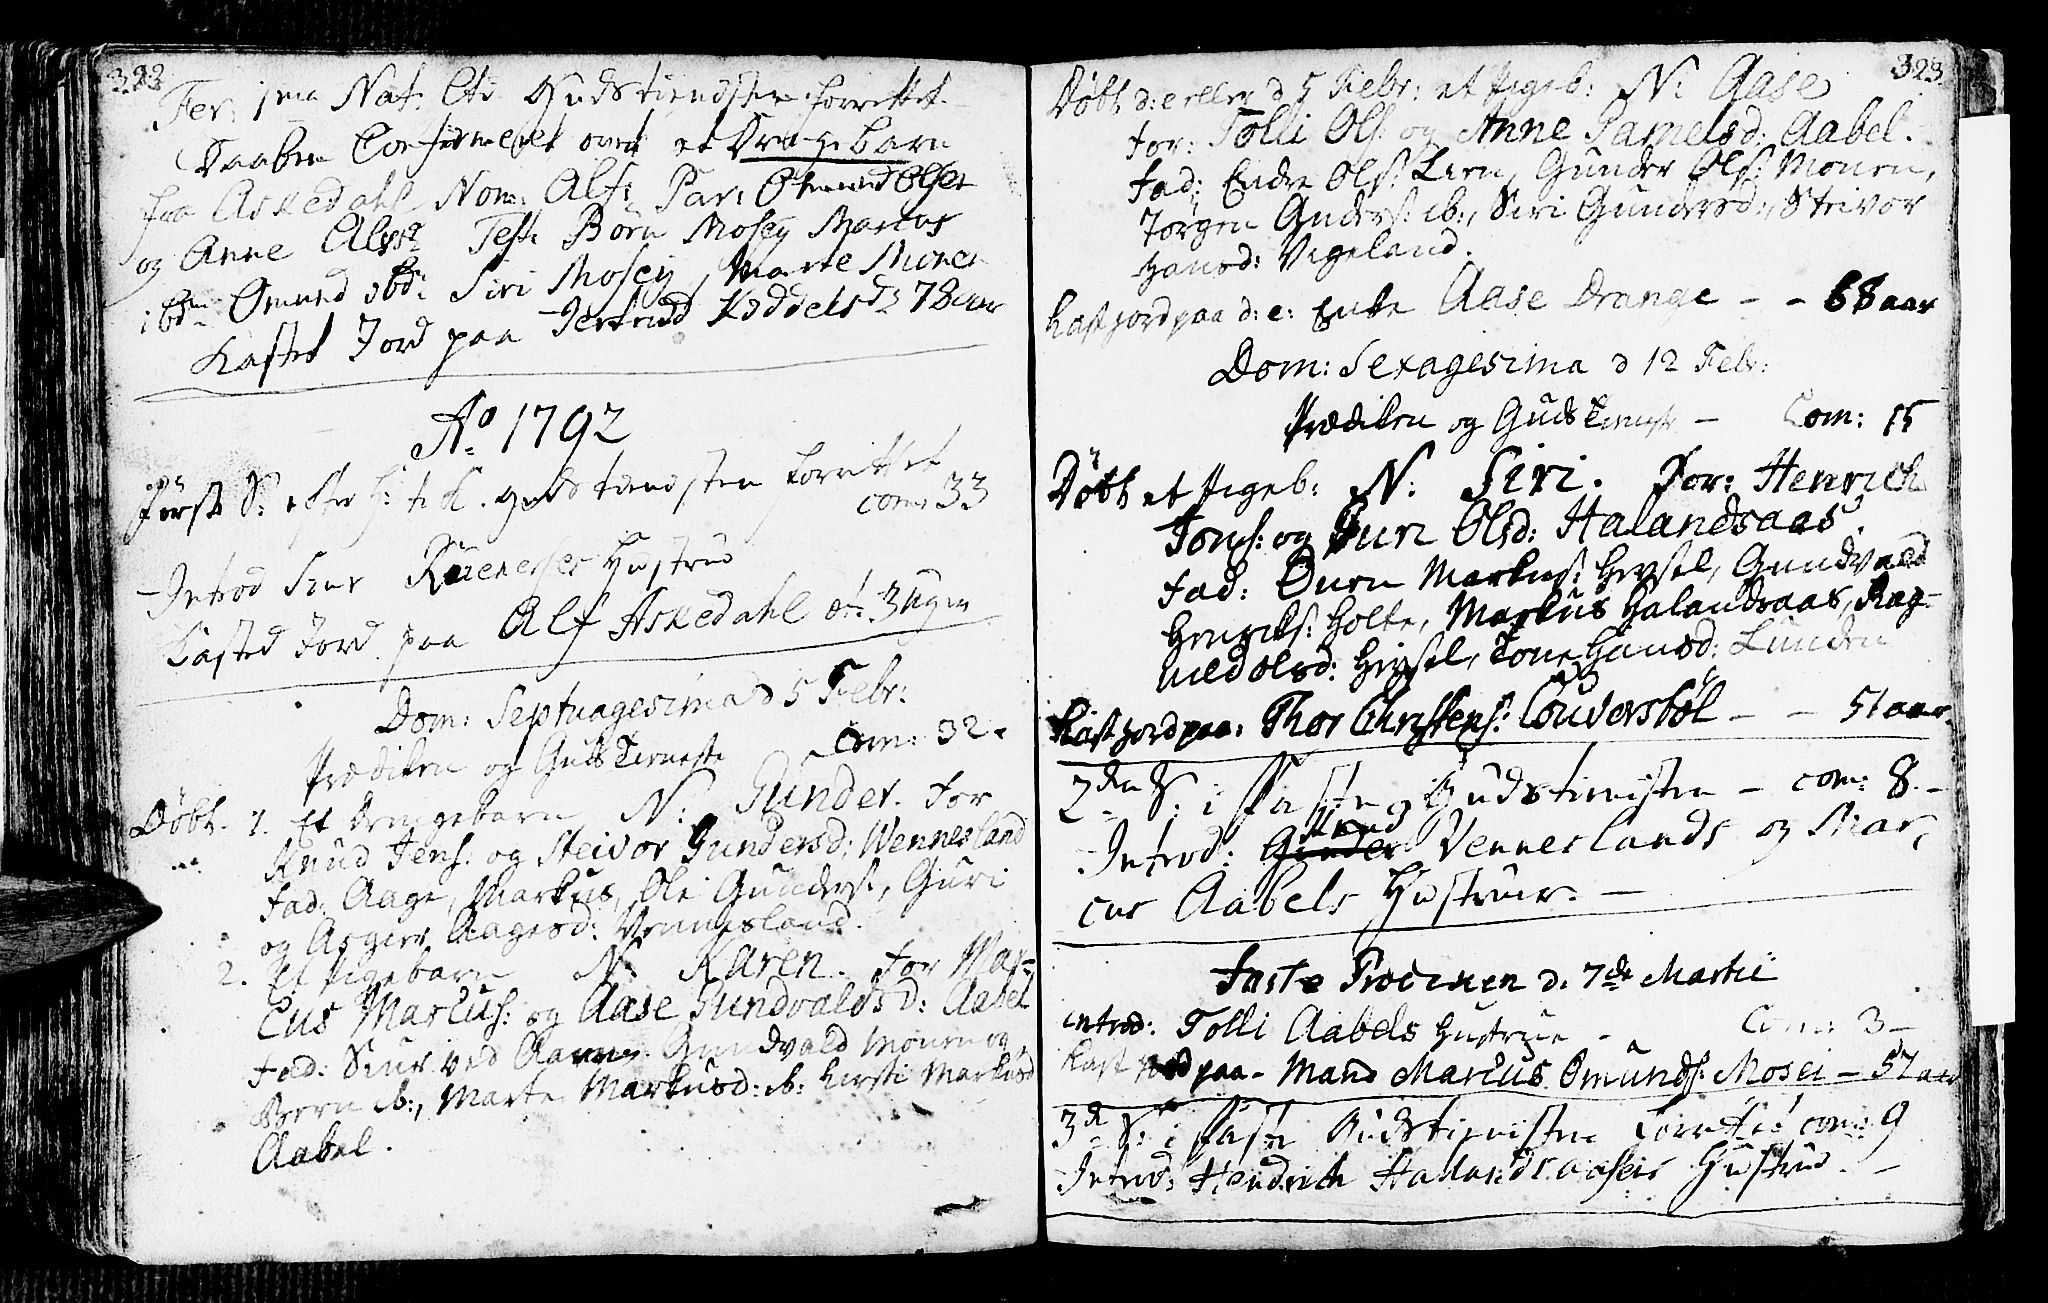 322
Fer: 1ma Nat: Cti Gudstienesten forrettet
Daaben Confirmeret over et Drængebarn
fra Askedahl Nom: Alf: Par: Omund Olsen
og Anne Test: Börn Mosey Marcus
ibm Omund ibd: Siri Mosey, Marte Monen
Kasted Jord paa Jertrud 78 aar
Ao 1792
Förste S: efter H: t: K. gudstienesten forrettet
com: 33
Introd Hustrue
Kasted Jord paa Alf Askedahl æt: 3 Uger
Dom: Septuagesima d 5 Febr:
Prædiken og Guds Tieneste Com: 32.
Döbt. 1. Et drengebarn N: Gunder. For
Knud Jens: og Steivor Gundersd: Wennesland
Fad: Aage, Markus, Ole Gunders:, Guri
og Asgier Aagesd: Vennesland.
2. Et Pigebarn N: Karen. For Mar-
cus Marcus: og Aase Gundvaldsd: Aabel
Fad: Siur ved Gundvald Monen og
Börn ib:, Marte Markusd: ib: Kirsti Markusd
Aabel.
323
Döbt d: e eller d 5 Febr: et Pigeb: N: Aase
For: Tolli Ols: og Anne Danielsd: Aabel.
Fad: Endre Ols: Lien, Gunder Ols: Monen,
Jörgen Anders: ib:, Siri Gundersd:, Steivor
Hansd: Vigeland.
Kast jord paa d: e: Enke Aase Drange - - 68 aar
Dom: Sexagesima d 12 Febr:
Prædiken og Guds Tieneste - Com: 15
Döbt et Pigeb: N: Siri. For: Henrich
Toms: og Guri Olsd: Halandsaas.
Fad: Ouen Markus: Heysel, Gundvald
Henriks: Holte, Markus Halandsaas, Rag-
nild Olsd: Heysel, Tone Hansd: Lunden
Kast jord paa: Thor Christens: Couversböl - - 51 aar.
2den S: i Faste Gudstienisten - com: 8. -
Introd: Knud Venneslands og Mar,
cus Aabels Hustruer. -
Faste Prædiken d. 7de Martii
introd: Tolli Aabels Hustrue - Com: 3 -
Kast jord paa - Mand Marcus Omunds: Mosei - 57 aar
3de S: i Faste Gudstienisten Forrettet com: 9
Introd: Hendrich Hallandsaasens Hustrue. -